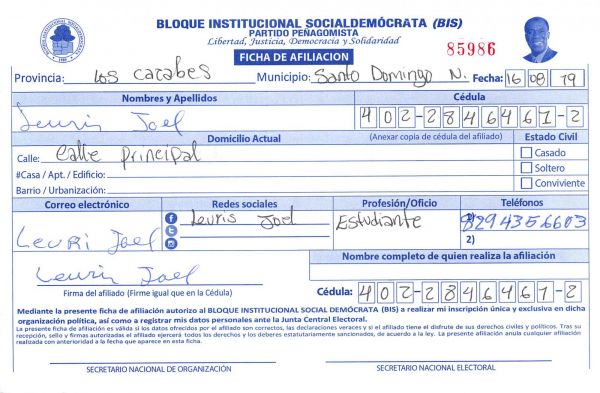 BLOQUE INSTITUCIONAL SOCIALDEMÓCRATA (BIS)
PARTIDO PEÑAGOMISTA
Libertad, Justicia, Democracia y Solidaridad
FICHA DE AFILIACION
85986
Provincia: Los Cacabes Municipio: Santo Domingo N. Fecha: 16 08 19
Nombres y Apellidos Cédula
Leuris Joel 402-2846461-2
Domicilio Actual (Anexar copia de cédula del afiliado) Estado Civil
Calle: Calle Principal Casado
#Casa / Apt. / Edificio: Soltero
Barrio / Urbanización: Conviviente
Correo electrónico Redes sociales Profesión/Oficio Teléfonos
Leuris Joel Estudiante 1) 829 435 6603
Leuri Joel 2)
Nombre completo de quien realiza la afiliación
Leuris Joel
Firma del afiliado (Firme igual que en la Cédula) Cédula: 402-2846461-2
Mediante la presente ficha de afiliación autorizo al BLOQUE INSTITUCIONAL SOCIAL DEMÓCRATA (BIS) a realizar mi inscripción única y exclusiva en dicha
organización política, así como a registrar mis datos personales ante la Junta Central Electoral.
La presente ficha de afiliación es válida si los datos ofrecidos por el afiliado son correctos, las declaraciones veraces y si el afiliado tiene el disfrute de sus derechos civiles y políticos. Tras su
recepción, sello y firmas autorizadas el afiliado ejercerá todos los derechos y los deberes estatutariamente sancionados, de acuerdo a la ley. La presente afiliación anula cualquier afiliación
realizada con anterioridad a la fecha que aparece en esta ficha.
SECRETARIO NACIONAL DE ORGANIZACIÓN SECRETARIO NACIONAL ELECTORAL